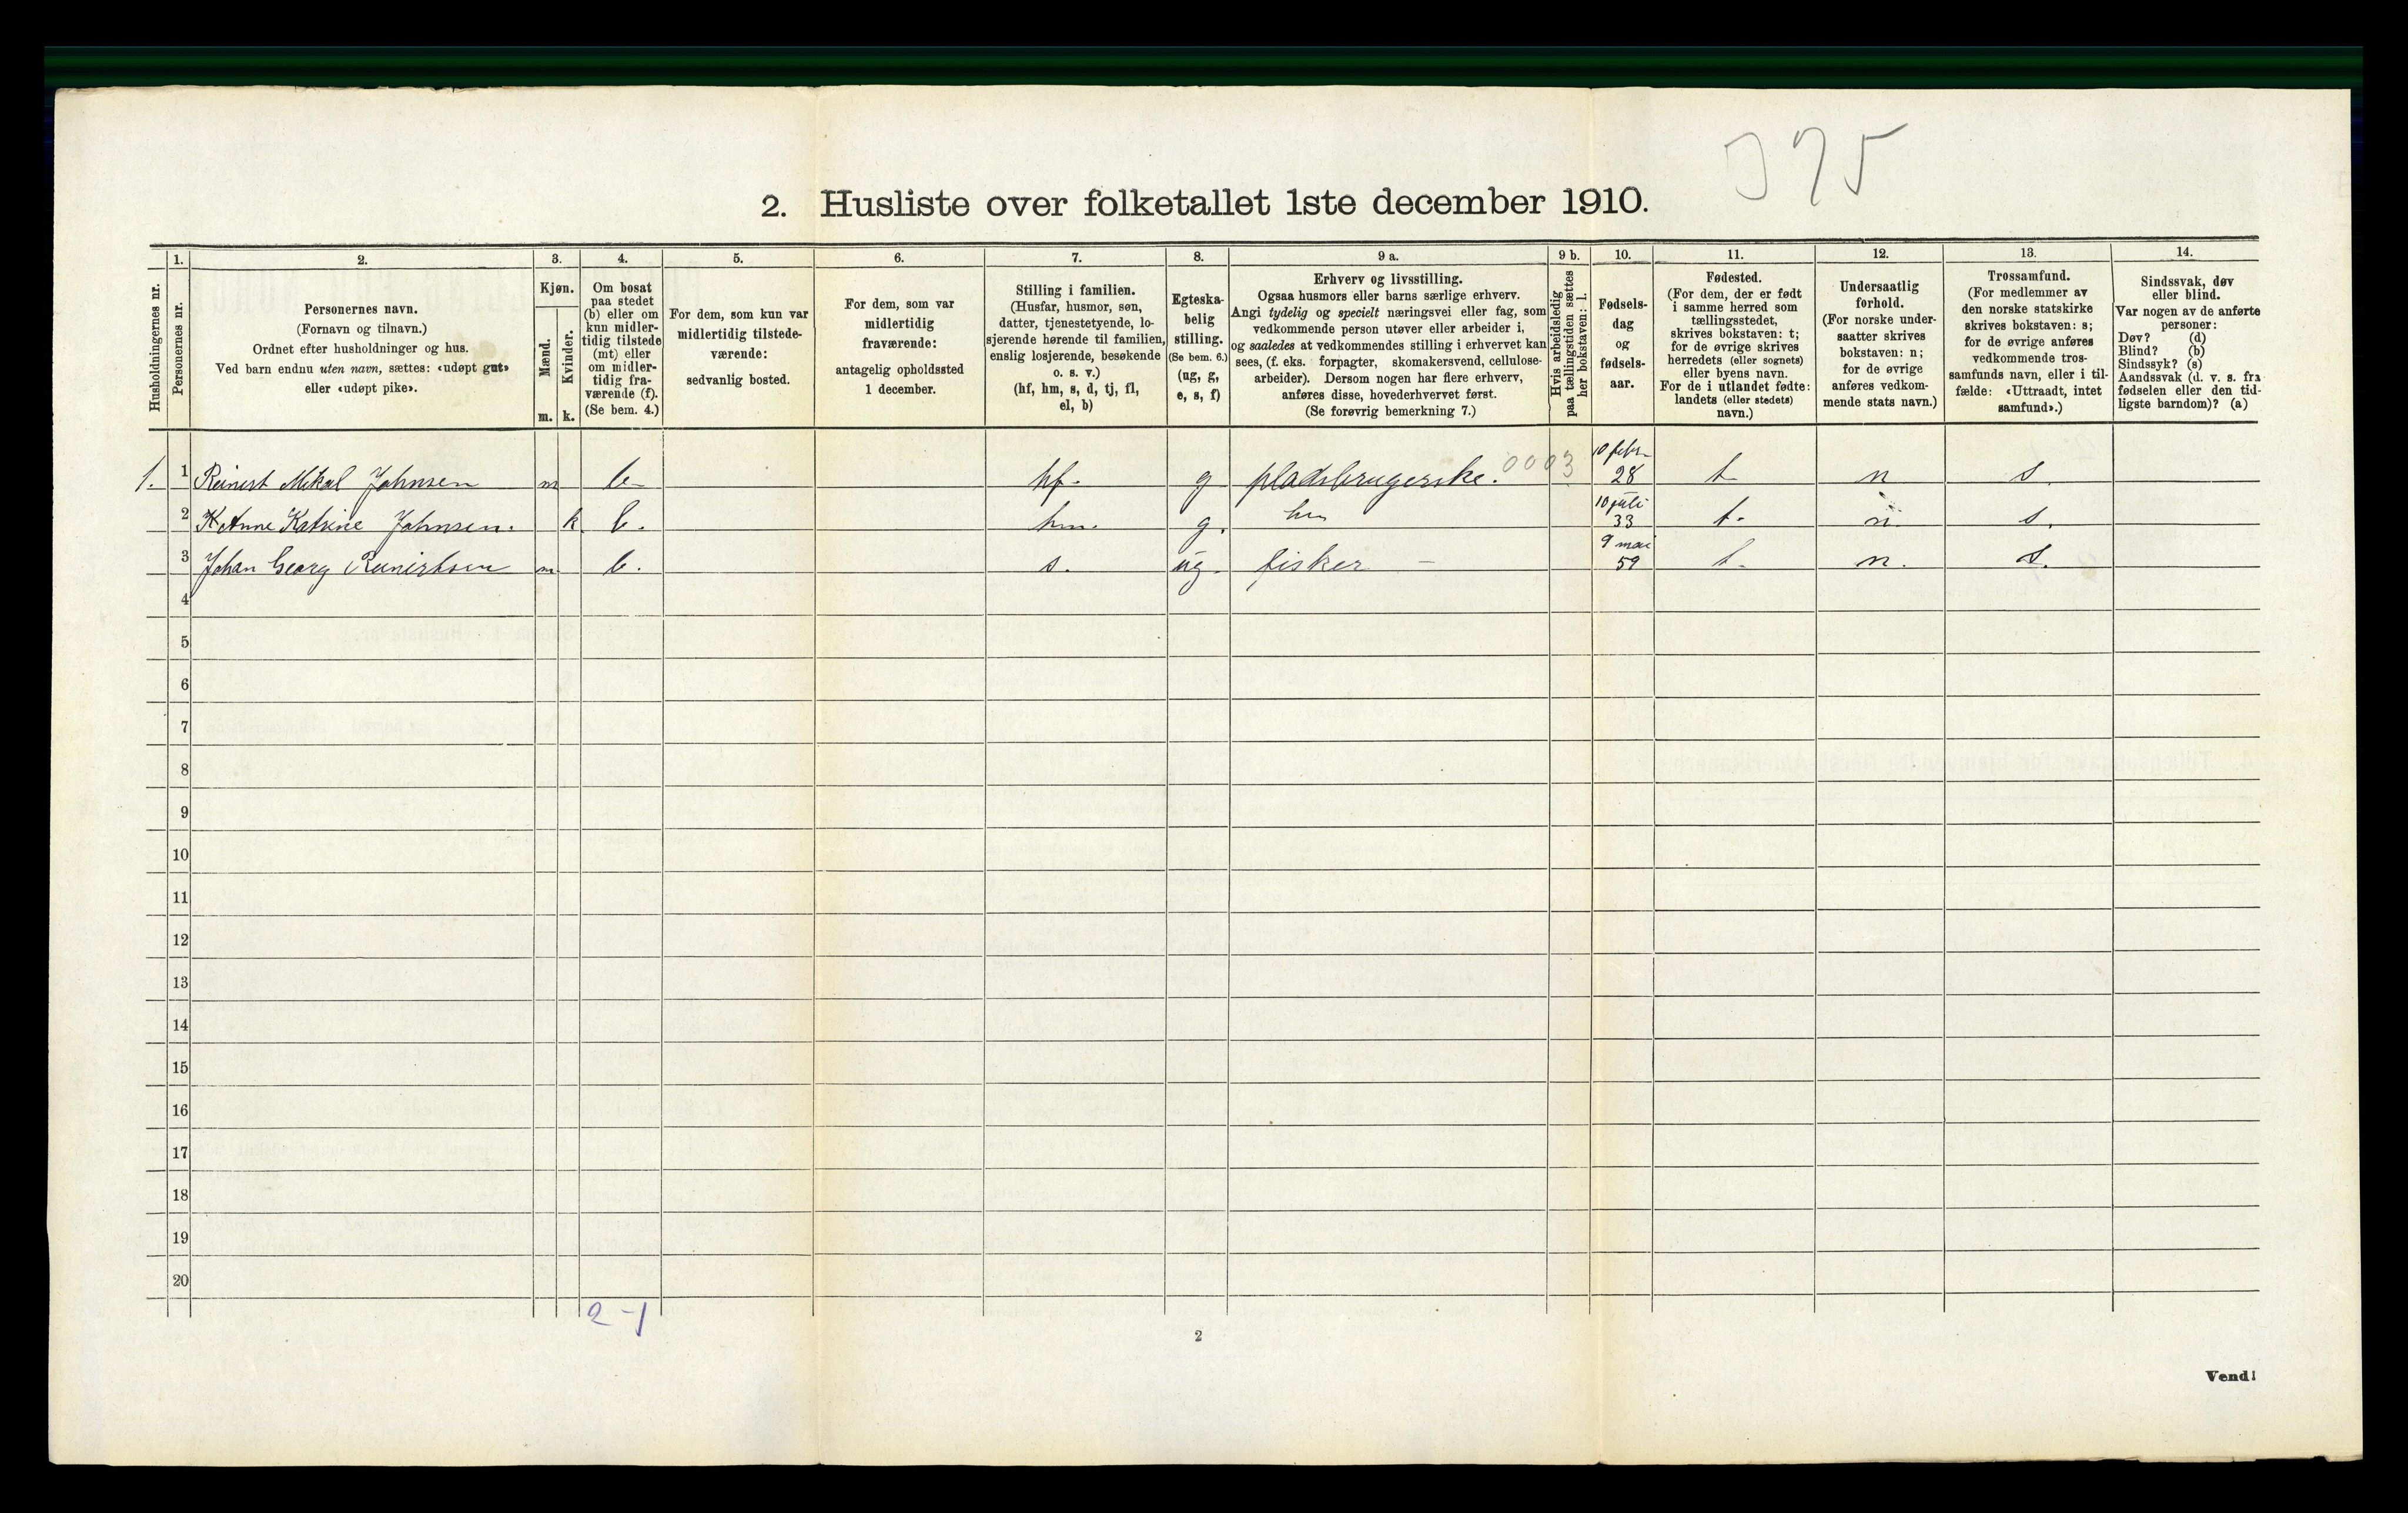 375
2. Husliste over folketallet 1ste december 1910.
Husholdningernes nr.
1.
Personernes nr.
2.
Personernes navn.
(Fornavn og tilnavn.)
Ordnet efter husholdninger og hus.
Ved barn endnu uten navn, sættes: «udøpt gut»
eller «udøpt pike».
3.
Kjøn.
Mænd.
m.
Kvinder.
k.
4.
Om bosat
paa stedet
(b) eller om
kun midler-
tidig tilstede
(mt) eller
om midler-
tidig fra-
værende (f).
(Se bem. 4.)
5.
For dem, som kun var
midlertidig tilstede-
værende:
sedvanlig bosted.
6.
For dem, som var
midlertidig
fraværende:
antagelig opholdssted
1 december.
7.
Stilling i familien.
(Husfar, husmor, søn,
datter, tjenestetyende, lo-
sjerende hørende til familien,
enslig losjerende, besøkende
o. s. v.)
(hf, hm, s, d, tj, fl,
el, b)
8.
Egteska-
belig
stilling.
(Se bem. 6.)
(ug, g,
e, s, f)
9 a.
Erhverv og livsstilling.
Ogsaa husmors eller barns særlige erhverv.
Angi tydelig og specielt næringsvei eller fag, som
vedkommende person utøver eller arbeider i,
og saaledes at vedkommendes stilling i erhvervet kan
sees, (f. eks. forpagter, skomakersvend, cellulose-
arbeider). Dersom nogen har flere erhverv,
anføres disse, hovederhvervet først.
(Se forøvrig bemerkning 7.)
9 b.
Hvis arbeidsledig
paa tællingstiden sættes
her bokstaven: l.
10.
Fødsels-
dag
og
fødsels-
aar.
11.
Fødested.
(For dem, der er født
i samme herred som
tællingsstedet,
skrives bokstaven: t;
for de øvrige skrives
herredets (eller sognets)
eller byens navn.
For de i utlandet fødte:
landets (eller stedets)
navn.)
12.
Undersaatlig
forhold.
(For norske under-
saatter skrives
bokstaven: n;
for de øvrige
anføres vedkom-
mende stats navn.)
13.
Trossamfund.
(For medlemmer av
den norske statskirke
skrives bokstaven: s;
for de øvrige anføres
vedkommende tros-
samfunds navn, eller i til-
fælde: «Uttraadt, intet
samfund».)
14.
Sindssvak, døv
eller blind.
Var nogen av de anførte
personer:
Døv? (d)
Blind? (b)
Sindssyk? (s)
Aandssvak (d. v. s. fra
fødselen eller den tid-
ligste barndom)? (a)
1. 1 Reinert Mikal Johnsen m b- hf. g pladsbrugerske. 0003 10 febr 28 t n s.
2 K Anne Katrine Johnsen. k b. hm. g. hm 10 juli 33 t. n. s.
3 Johan Georg Reinertsen m b. s. ug. fisker - 9 mai 59 t. n. s.
4
5
6
7
8
9
10
11
12
13
14
15
16
17
18
19
20
2-1
2
Vend!